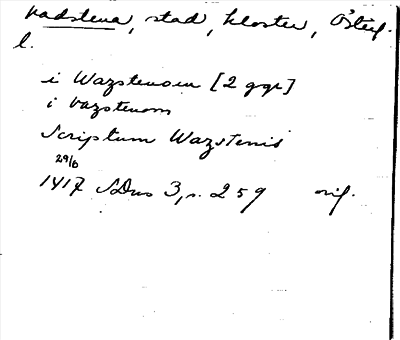 Vadstena, stad, kloster, Östergl.
i Wazstenom [2 ggr]
i vazstenom
Scriptum Wazstenis
29/6
1417 SDns 3, s. 259 orig.